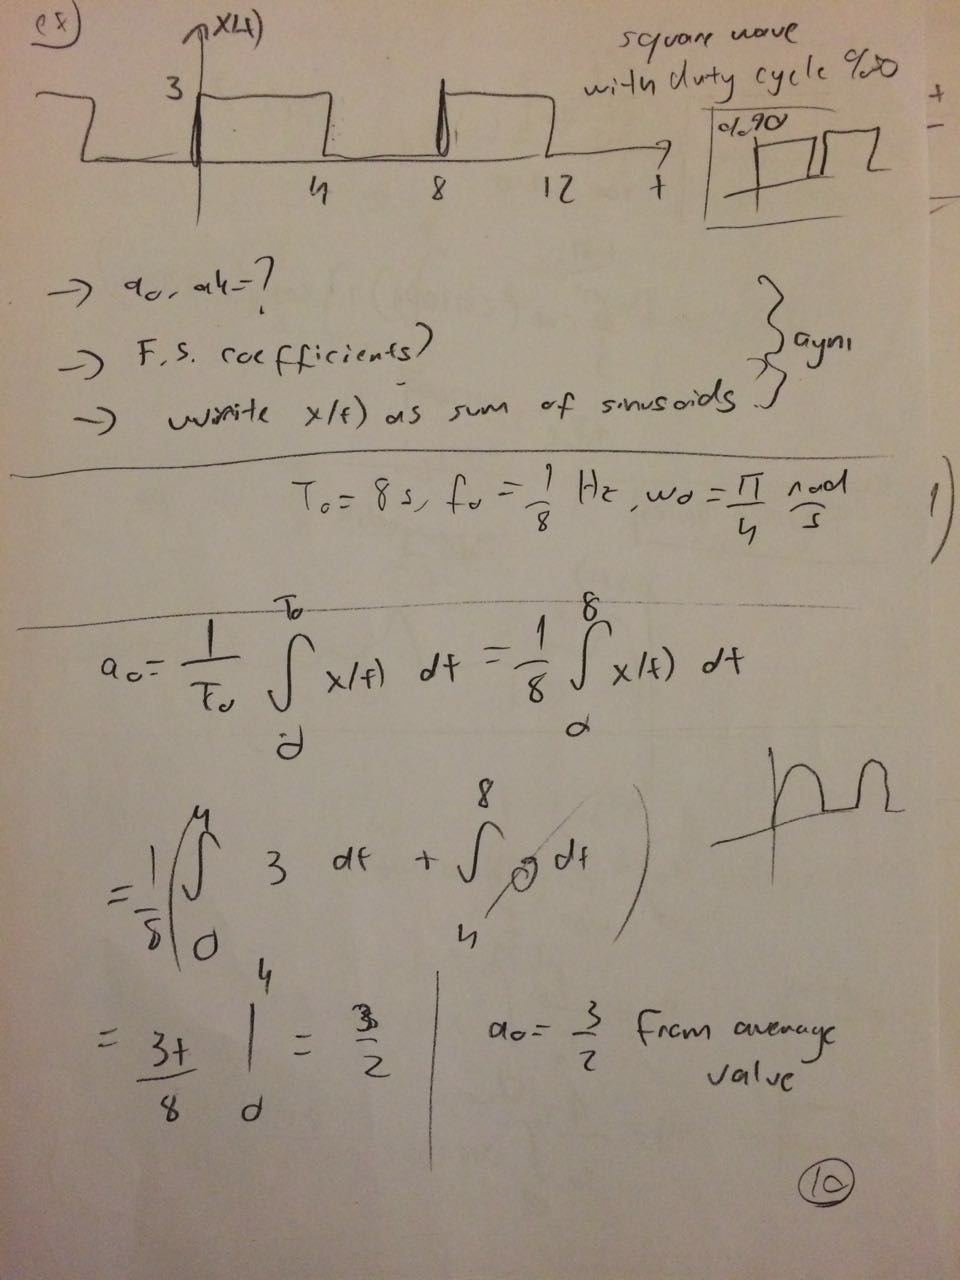 ex)
x(t)
square wave
with duty cycle %50
3
%90
4 8 12 t
→ a₀, ak=?
→ F.S. coefficients?
→ write x(t) as sum of sinusoids
} aynı
T₀ = 8 s, f₀ = 1/8 Hz, w₀ = π/4 rad/s
1)
a₀ = 1/T₀ ∫₀^T₀ x(t) dt = 1/8 ∫₀^8 x(t) dt
= 1/8 ( ∫₀^4 3 dt + ∫₄^8 0 dt )
= 3t/8 |₀^4 = 3/2
a₀ = 3/2 from average
value
10